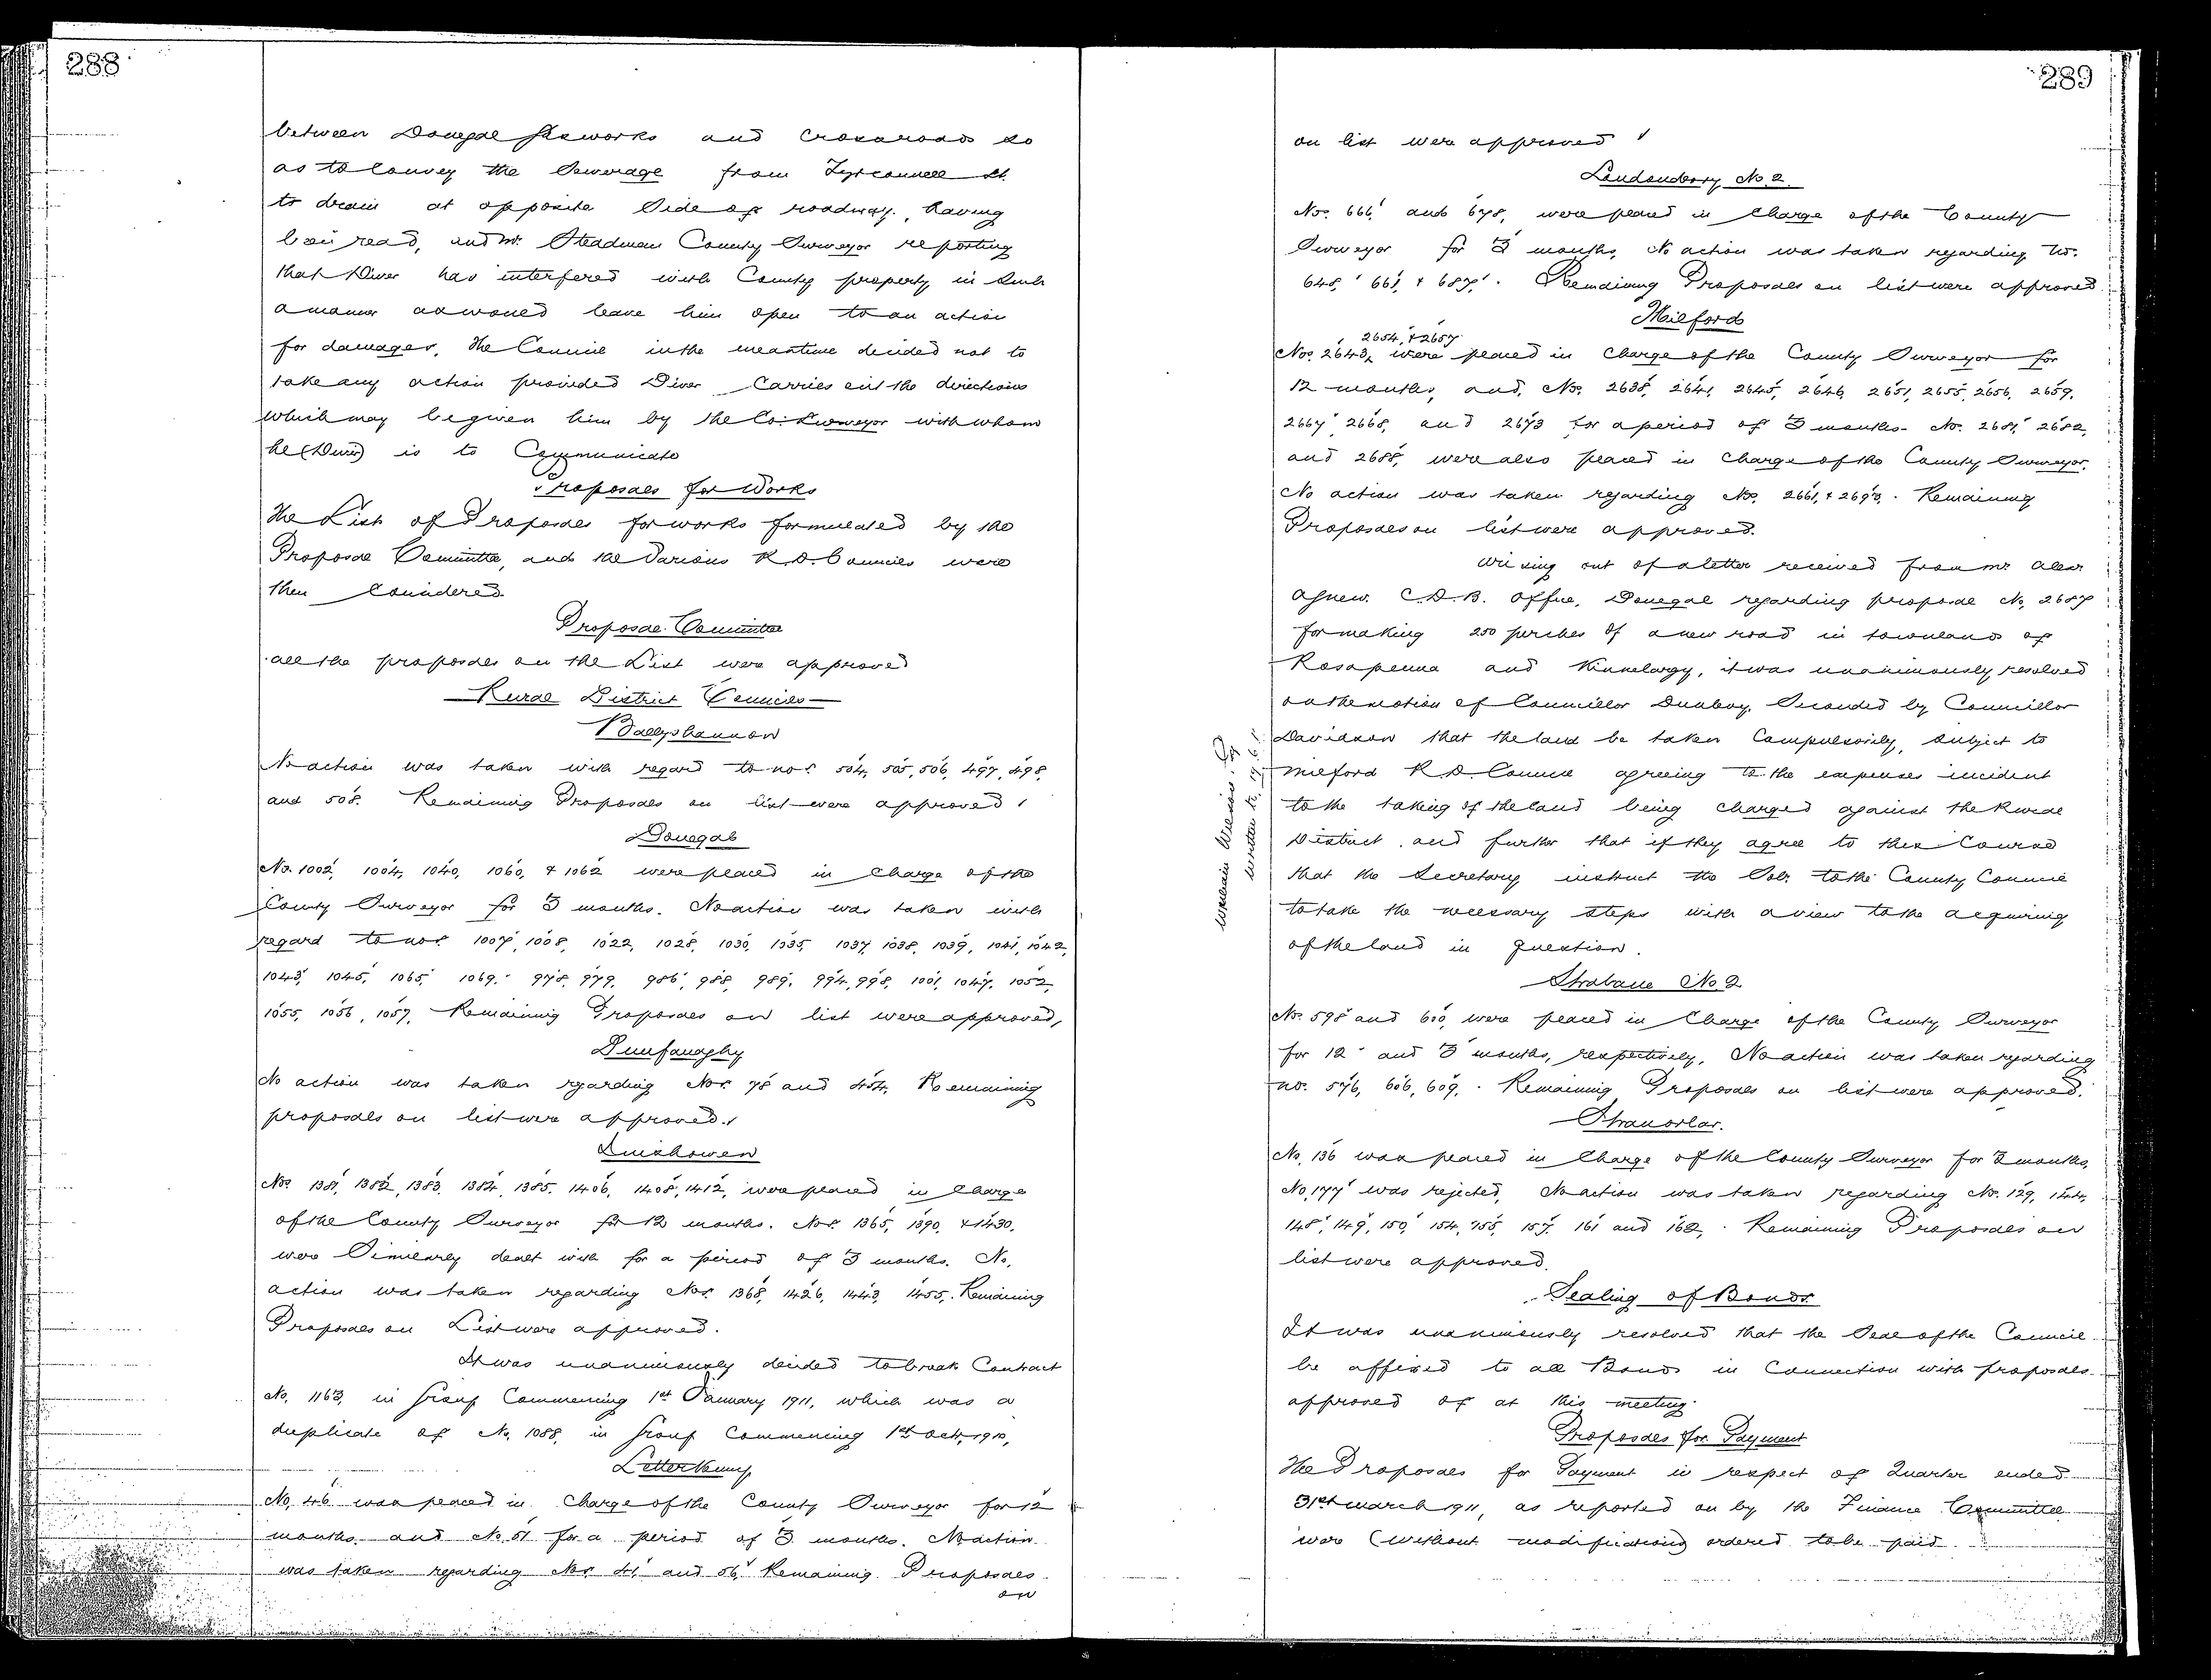 288
between Donegal Gasworks and Crossroads so
as to convey the Sewerage from Tyrconnell St.
to drain at opposite side of roadway, having
been read, and Mr. Steadman County Surveyor reporting
that Diver has interfered with County property in such
a manner as would leave him open to an action
for damages, the Council in the meantime decided not to
take any action provided Diver carries out the directions
which may be given him by the Co: Surveyor with whom
he (Diver) is to Communicate
Proposals for Works
The List of Proposals for works formulated by the
Proposal Committee, and the Various R.D. Councils were
then Considered.
Proposal Committee
all the proposals on the List were approved
Rural District Councils
Ballyshannon
No action was taken with regard to nos. 504, 505, 506, 497, 498,
and 508. Remaining Proposals on list were approved
Donegal
No. 1002, 1004, 1040, 1060, & 1062 were placed in Charge of the
County Surveyor for 3 months. No action was taken with
regard to nos. 1007, 1008, 1022, 1028, 1030, 1035, 1037, 1038, 1039, 1041, 1042,
1043, 1045, 1065, 1069. 978, 979, 986, 988, 989, 994, 998, 1001, 1047, 1052,
1055, 1056, 1057, Remaining Proposals on list were approved,
Dunfanaghy
No action was taken regarding Nos. 78 and 454, Remaining
proposals on list were approved.
Inishowen
Nos. 1381, 1382, 1383, 1384, 1385, 1406, 1408, 1412, were placed in Charge
of the County Surveyor for 12 months. Nos. 1365, 1390, & 1430,
were Similarly dealt with for a period of 3 months. No.
action was taken regarding Nos. 1368, 1426, 1443, 1455,. Remaining
Proposals on List were approved.
It was unanimously decided to break Contract
No. 1163, in Group Commencing 1st January 1911, which was a
duplicate of No. 1088, in Group Commencing 1st Oct, 1910,
Letterkenny
No. 46 was placed in Charge of the County Surveyor for 12
months and No. 51 for a period of 3 months. No action
was taken regarding Nos. 41 and 56 Remaining Proposals
on
289
on list were approved
Londonderry No. 2.
Nos. 666, and 678, were placed in Charge of the County
Surveyor for 3 months, No action was taken regarding No.
648, 661, & 687. Remaining Proposals on list were approved
Milford
2654, & 2657
Nos. 2643, were placed in Charge of the County Surveyor for
12 months, and, Nos. 2638, 2641, 2645, 2646, 2651, 2655, 2656, 2659,
2667, 2668, and 2673 for a period of 3 months. No. 2681, 2682,
and 2688, were also placed in Charge of the County Surveyor.
No action was taken regarding Nos. 2661, & 2693,. Remaining
Proposals on list were approved.
Arising out of a letter received from Mr Alex
Agnew. C.D.B. Office, Donegal regarding proposal No. 2687
for making 250 perches of a new road in townlands of
Rosapenna and , it was unanimously resolved
on the motion of Councillor Dunbay, Seconded by Councillor
Davidson that the land be taken Compulsorily, subject to
Milford R D Council agreeing to the expenses incident
to the taking of the land being charged against the Rural
District, and further that if they agree to this Course
that the Secretary instruct the Solr. to the County Council
to take the necessary steps with a view to the acquiring
of the land in question.
written to
Strabane No 2
No. 598 and 600, were placed in Charge of the County Surveyor
for 12 and 3 months, respectively, No action was taken regarding
no. 576, 606, 609,. Remaining Proposals on list were approved.
Stranorlar.
No, 136 was placed in Charge of the County Surveyor for 3 months,
No, 177 was rejected, No action was taken regarding No. 129, 144,
148, 149, 150, 154, 155, 157, 161 and 162,. Remaining Proposals on
list were approved.
Sealing of Bonds
It was unanimously resolved that the Seal of the Council
be affixed to all Bonds in Connection with proposals
approved of at this meeting.
Proposals for Payment
The Proposals for Payment in respect of Quarter ended
31st March 1911, as reported on by the Finance Committee
were (without modification) ordered to be paid